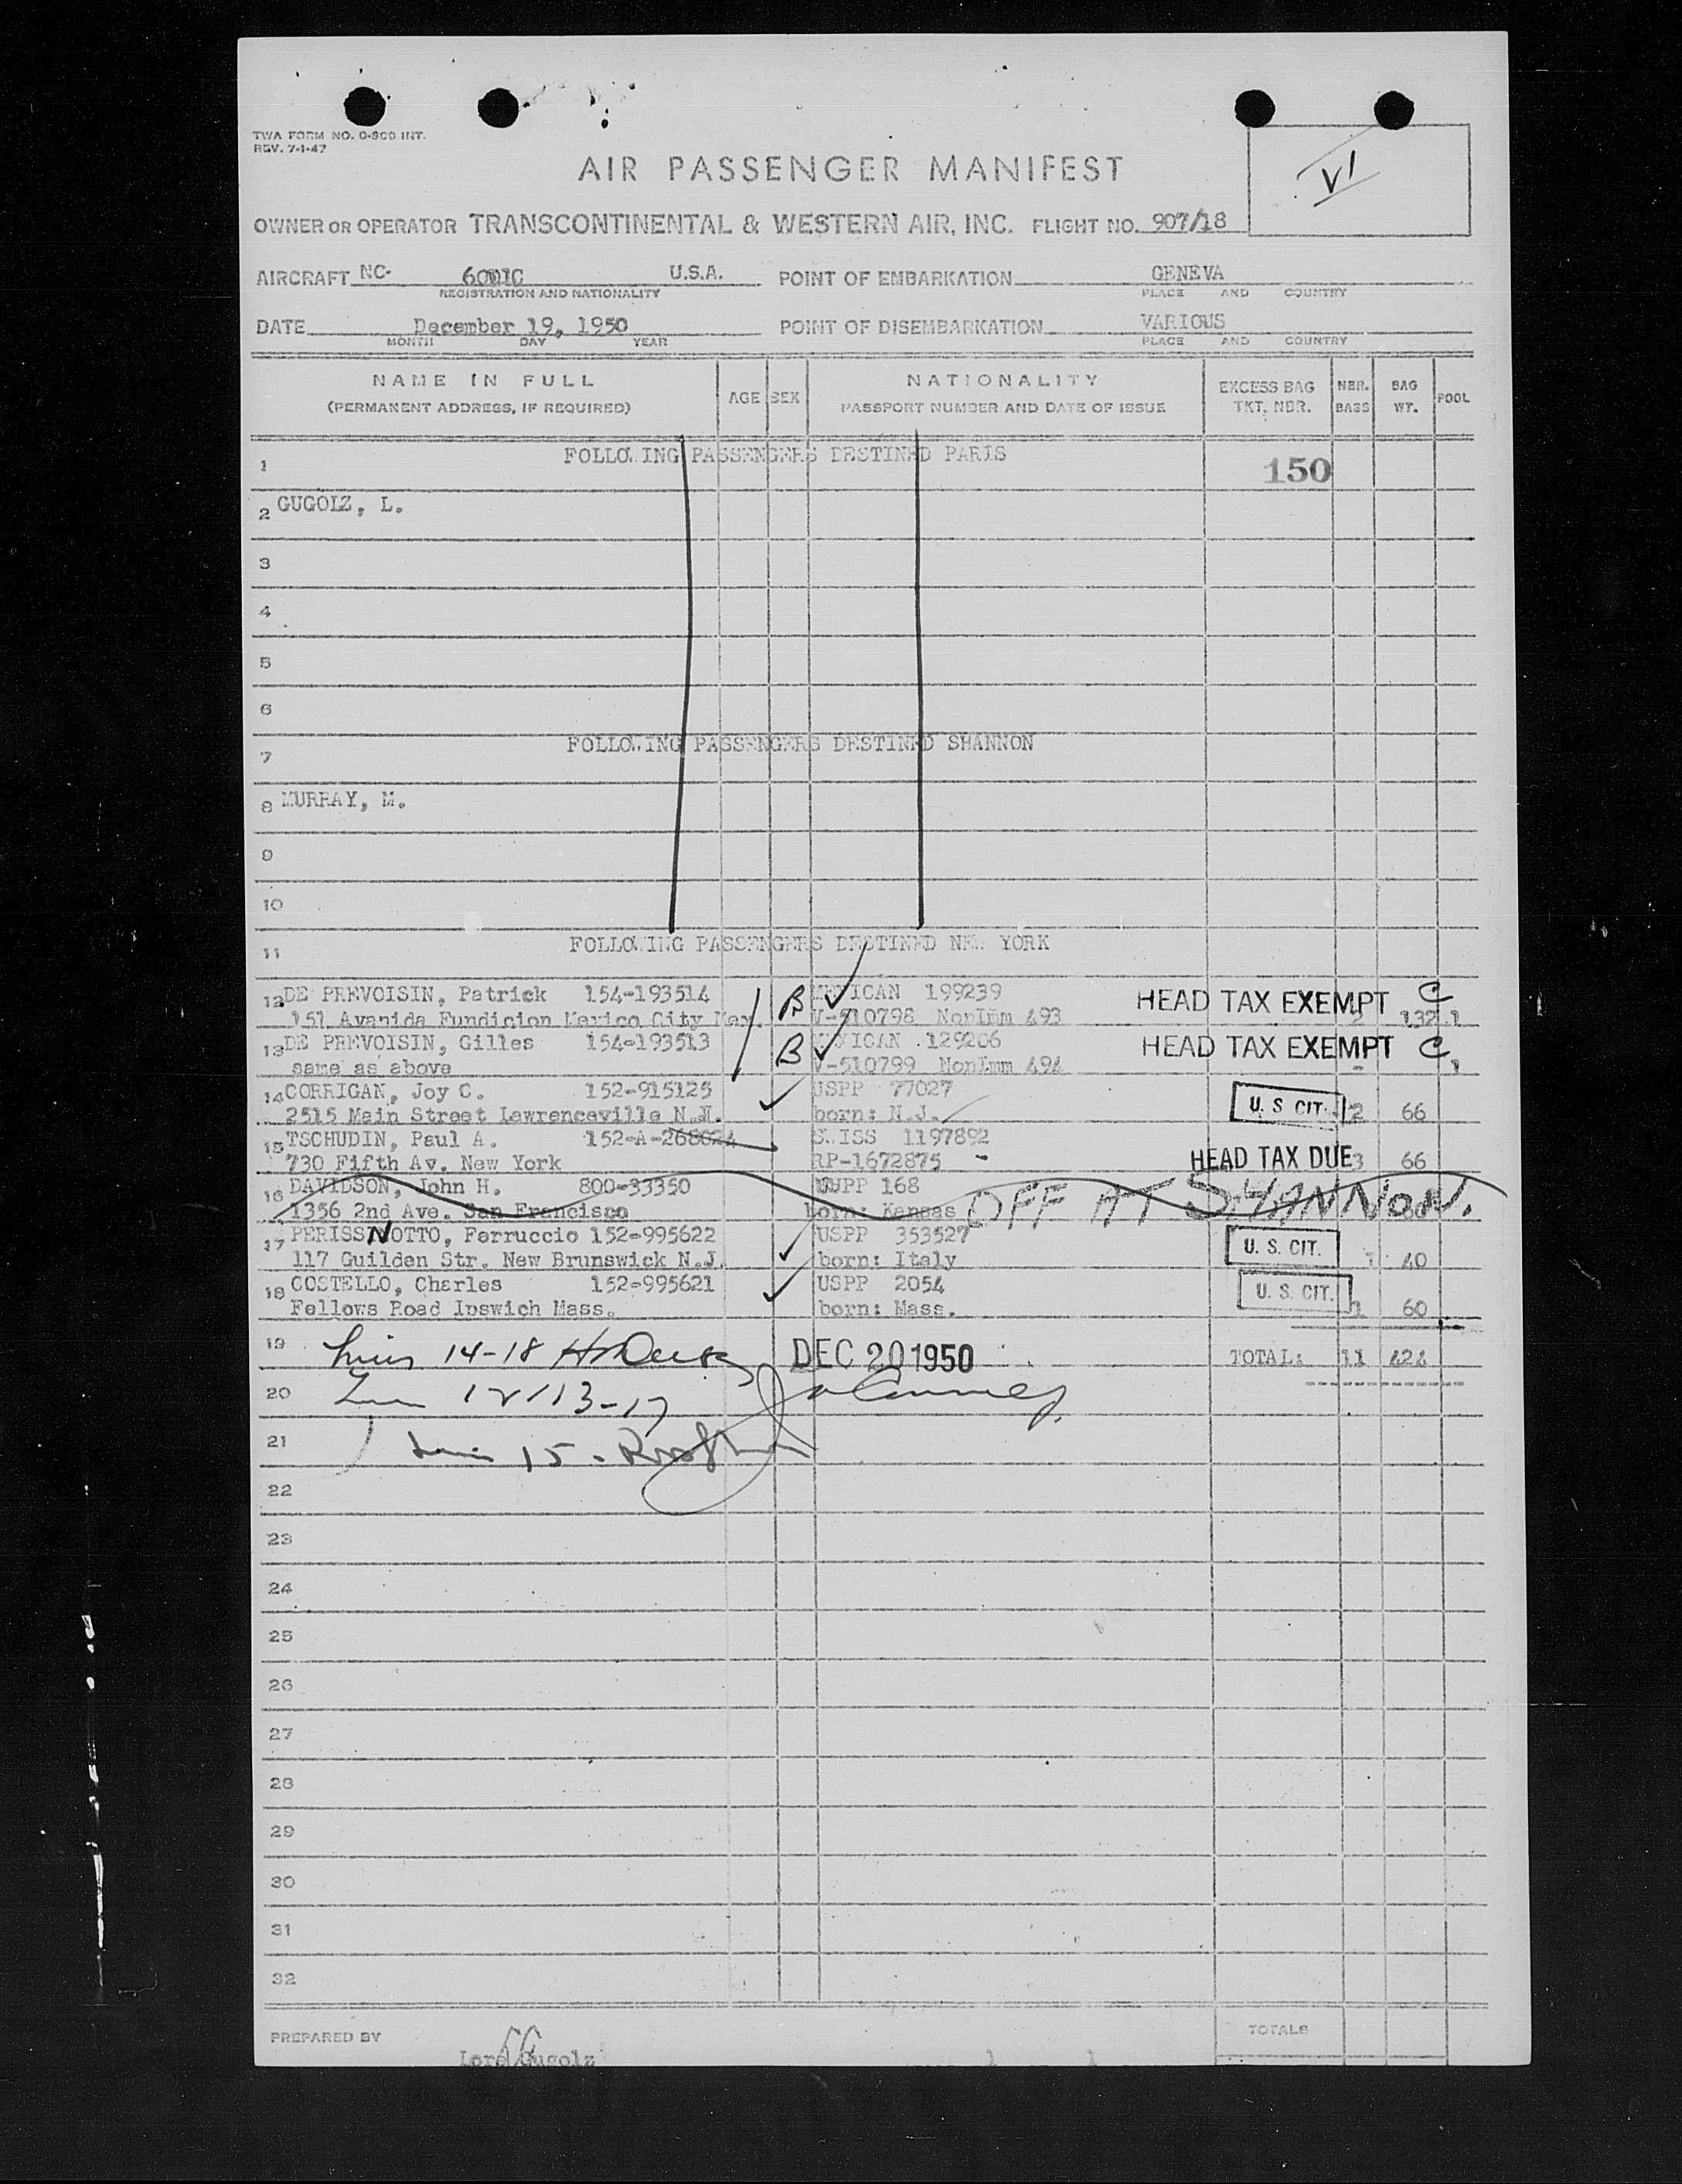 TWA FORM NO. O-300 INT.
REV. 7-1-47
AIR PASSENGER MANIFEST
VI
OWNER OR OPERATOR TRANSCONTINENTAL & WESTERN AIR, INC. FLIGHT NO. 907/18
AIRCRAFT NC- U.S.A. POINT OF EMBARKATION GENEVA
REGISTRATION AND NATIONALITY PLACE AND COUNTRY
DATE December 19, 1950 POINT OF DISEMBARKATION VARIOUS
MONTH DAY YEAR PLACE AND COUNTRY
NAME IN FULL AGE SEX NATIONALITY EXCESS BAG NBR. BAG POOL
(PERMANENT ADDRESS, IF REQUIRED) PASSPORT NUMBER AND DATE OF ISSUE TKT. NBR. BAGS WT.
1 FOLLOWING PASSENGERS DESTINED PARIS 150
2 GUGOLZ, L.
3
4
5
6
7 FOLLOWING PASSENGERS DESTINED SHANNON
8 MURRAY, M.
9
10
11 FOLLOWING PASSENGERS DESTINED NEW YORK
12 DE PREVOISIN, Patrick 154-193514 B MEXICAN 199239 HEAD TAX EXEMPT C
151 Avenida Fundicion Mexico City Mex. V-510798 NonImm 493 2 132
13 DE PREVOISIN, Gilles 154-193513 B MEXICAN 129206 HEAD TAX EXEMPT C
same as above V-510799 NonImm 494 -
14 CORRIGAN, Joy C. 152-915125 USPP 77027 U. S. CIT.
2515 Main Street Lawrenceville N.J. born: N.J. 2 66
15 TSCHUDIN, Paul A. 152-A-268024 SWISS 1197892
730 Fifth Av. New York RP-1672875 - HEAD TAX DUE 3 66
16 DAVIDSON, John H. 800-33350 USPP 168 OFF AT SHANNON.
1356 2nd Ave. San Francisco born: Kansas 60
17 PERISSNOTTO, Ferruccio 152-995622 USPP 353527 U. S. CIT.
117 Guilden Str. New Brunswick N.J. born: Italy 1 40
18 COSTELLO, Charles 152-995621 USPP 2054 U. S. CIT.
Fellows Road Ipswich Mass. born: Mass. 60
19 14-18 DEC 20 1950 TOTAL: 11 424
20 12/13-17
21 15 -
22
23
24
25
26
27
28
29
30
31
32
PREPARED BY TOTALS
Gugolz